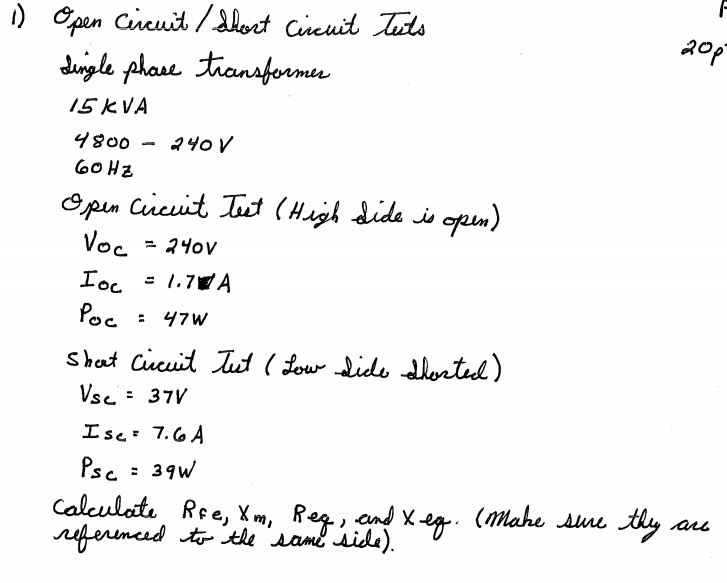 1) Open Circuit / Short Circuit Tests
20p
Single phase transformer
15 KVA
4800 - 240V
60 Hz
Open Circuit Test (High Side is open)
Voc = 240V
Ioc = 1.7 A
Poc = 47W
Short Circuit Test (Low Side Shorted)
Vsc = 37V
Isc = 7.6 A
Psc = 39W
Calculate Rfe, Xm, Req, and Xeq. (Make sure they are
referenced to the same side).